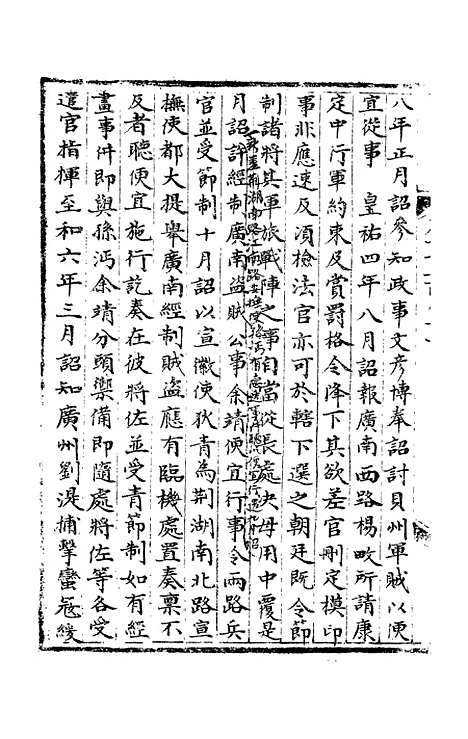 八年正月詔參知政事文彥博奉詔討貝州軍賊以便
宜從事　皇祐四年八月詔報廣南西路楊畋所請康
定中行軍約束及賞罰格令降下其欲差官刪定模印
事非應速及須檢法官亦可於轄下選之朝廷既令節
制諸將其軍旅戰陣之事自當從長處決毋用中覆是
月詔許經制廣南盜賊公事余靖便宜行事令兩路兵
官並受節制十月詔以宣徽使狄青為荆湖南北路宣
撫使都大提舉廣南經制賊盜應有臨機處置奏禀不
及者聽便宜施行訖奏在彼將佐並受青節制如有經
畫事件即與孫沔余靖分頭禦備即隨處將佐等各受
遣官指揮至和六年三月詔知廣州劉湜捕擊蠻冦緩